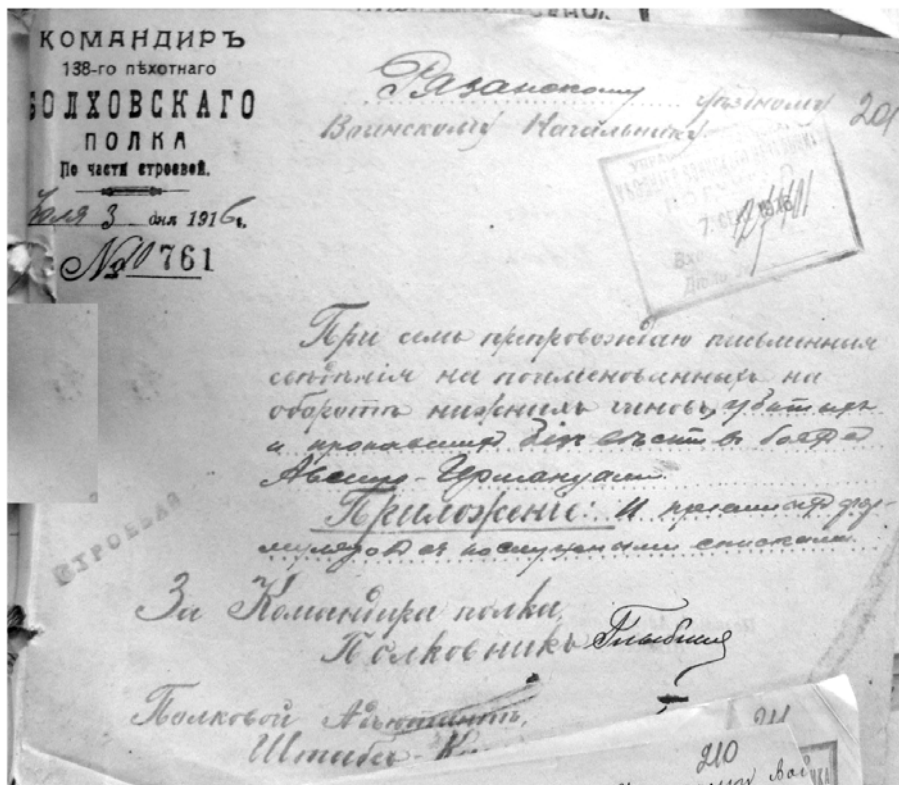 КОМАНДИРЪ
138-го пѣхотнаго
БОЛХОВСКАГО
ПОЛКА
По части строевой.
Іюля 3 дня 1916 г.
№ 10761
Рязанскому уѣздному
Воинскому Начальнику
201
УПРА
7 СЕН 1916
Вх
СТРОЕВАЯ
При семъ препровождаю письменныя
свѣдѣнія на поименованныхъ на
оборотѣ нижнихъ чиновъ, убитыхъ
и пропавшихъ безъ вѣсти въ бояхъ
Австро-Германцами.
Приложеніе: 
съ послужными списками.
За Командира полка,
Полковникъ
Полковой Адъютантъ,
Штабсъ-К
211
210